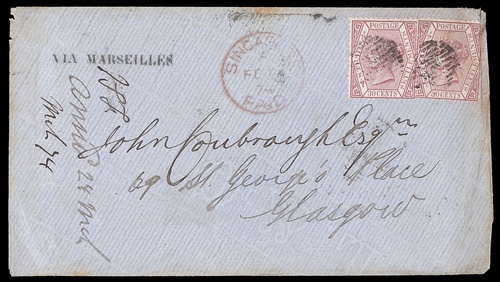 VIA MARSEILLES
SINGAPORE
FE
74
PAID
POSTAGE
30 CENTS
POSTAGE
30 CENTS
John Coubrough Esqr
69 St. George's Place
Glasgow
Mch 74
28 Mch